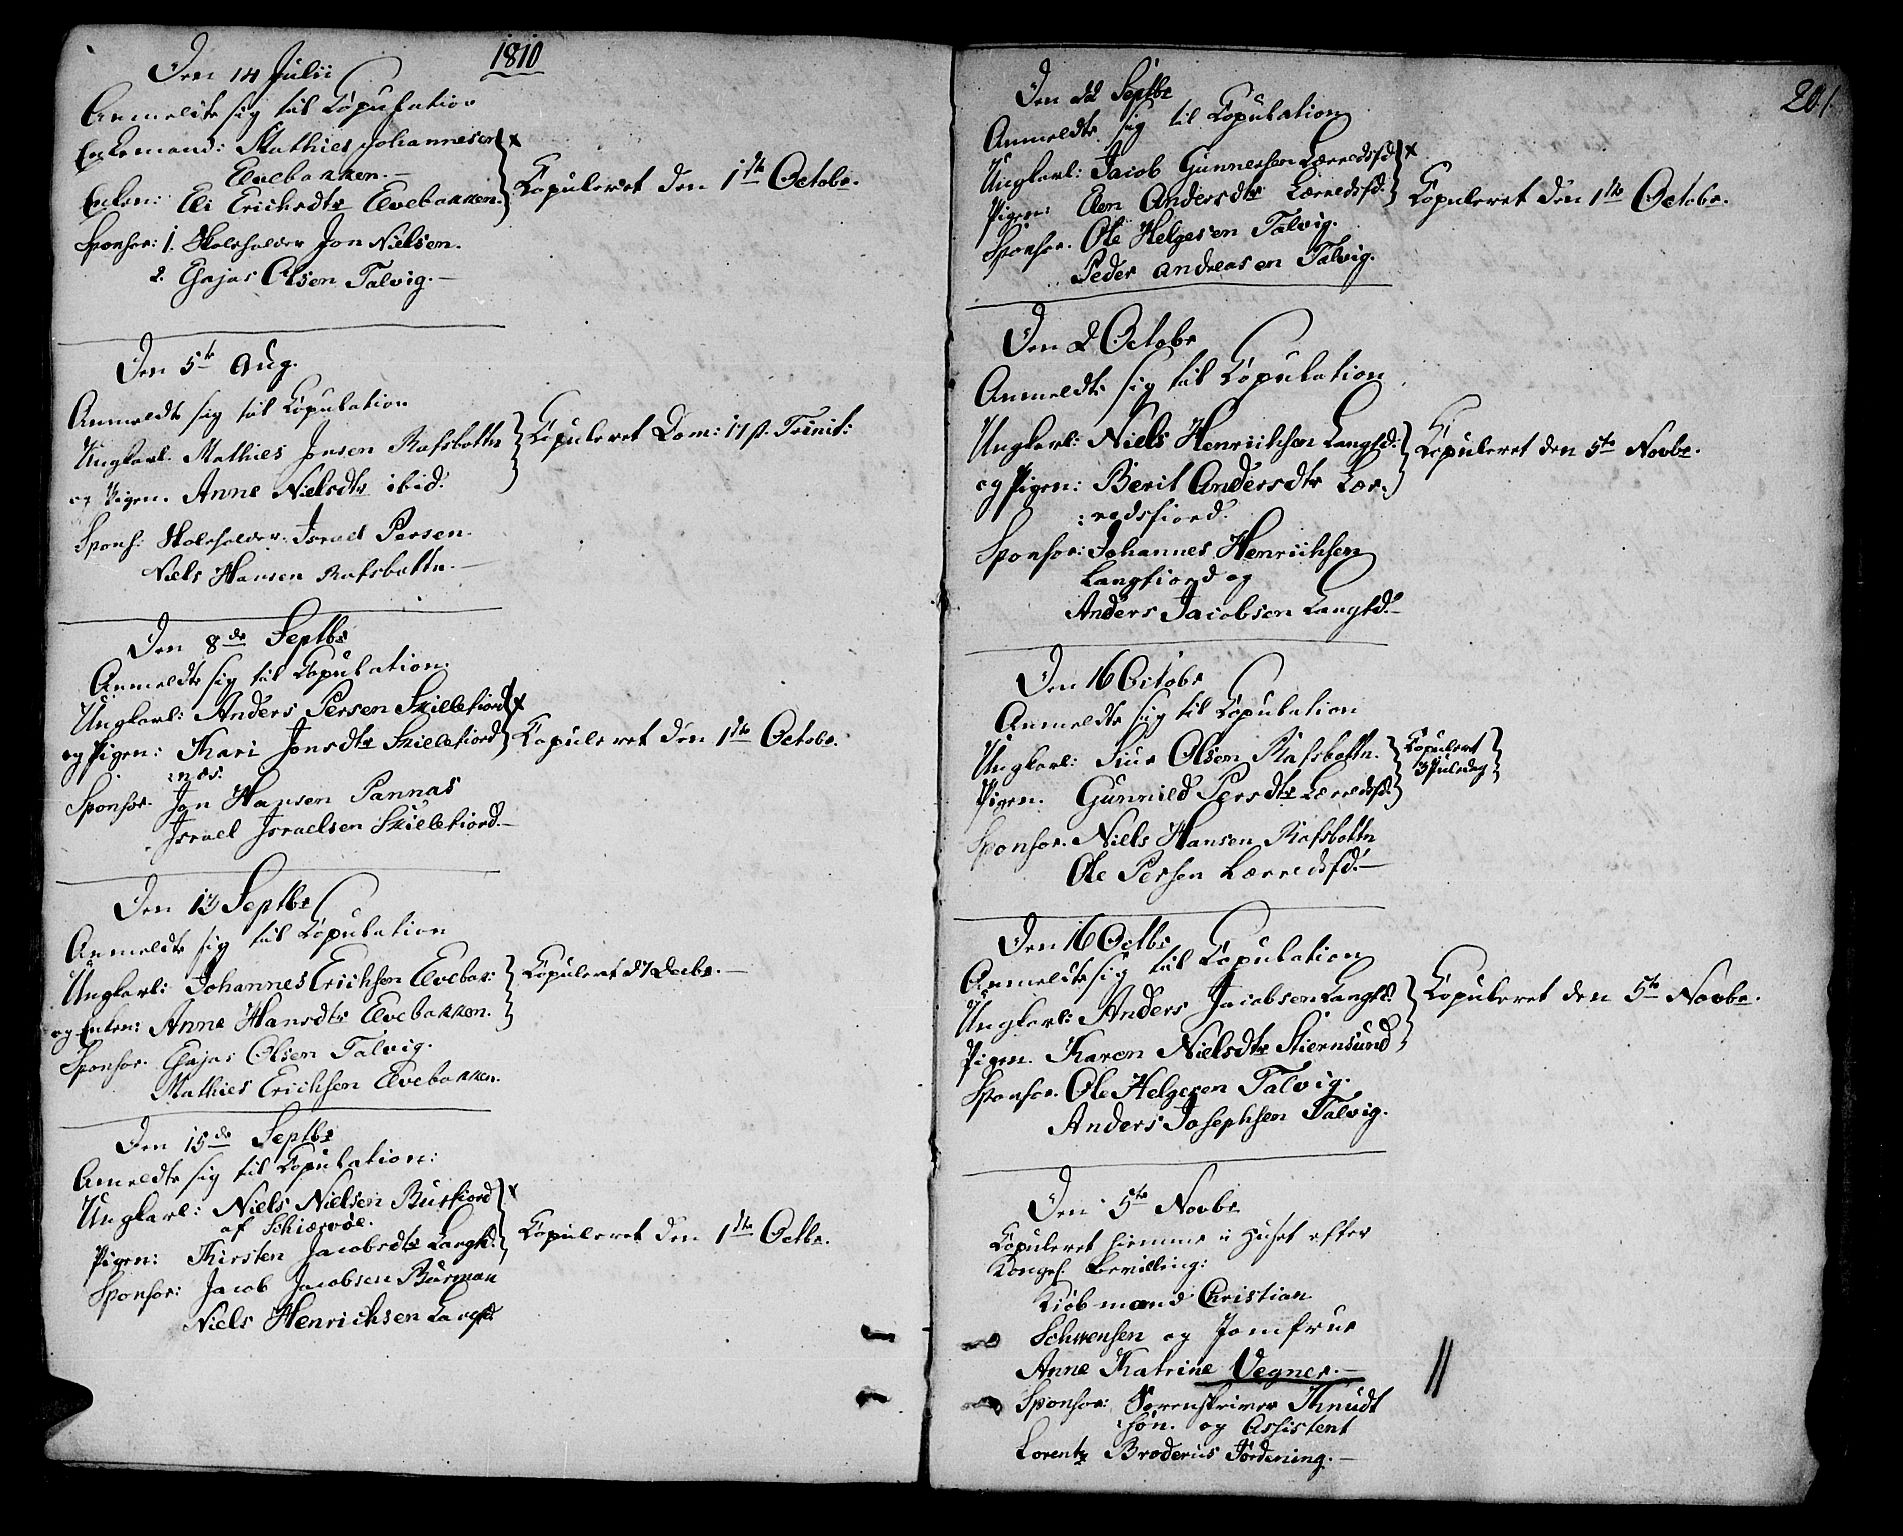 1810
Den 14 Julii
Anmeldte sig til Copulation
Enkemand: Mathies Johannesen
Elvebakken. —
Enken: Eli Erichsdtr Elvebakken.
Copuleret den 1ste Octobr.
Sponsor: 1. Skoleholder Jon Nielsen.
2. Olsen Talvig. —
Den 5te Aug.
Anmeldte sig til Copulation
Ungkarl. Mathies Jonsen Rafsbottn
og Pigen. Anne Nielsdtr ibid:
Copuleret Dom: 17 p. Trinit:
Spons: Skoleholder. Israel Persen.
Niels Hansen Rafsbottn. —
Den 8de Septbr
Anmeldte sig til Copulation.
Ungkarl: Anders Persen Skillefiord x
og Pigen: Kari Jonsdtr Skillefiord
:næs:
Copuleret den 1ste Octobr.
Sponsor. Jon Hansen Pannas
Israel Israelsen Skillefiord. —
Den 13 Septbr
Anmeldte sig til Copulation
Ungkarl: Johannes Erichsen Elvebak:
og Enken: Anne Hansdtr Elvebakken.
Copuleret d 7 Decbr. —
Sponsor. Olsen Talvig.
Mathies Erichsen Elvebakken.
Den 15de Septbr
Ameldte sig til Copulation:
Ungkarl: Niels Nielsen Burfiord x
af Schiærvøe.
Pigen: Kirsten Jacobsdtr Langfd:
Copuleret den 1ste Octbr.
Sponsor: Jacob Jacobsen Burman
Niels Henrichsen Langfd
201.
Den 22 Septbr
Anmeldte sig til Copulation
Ungkarl: Jacob Gunnersen Lærredsfd x
Pigen: Elen Andersdtr Lærredsfd:
Copuleret den 1ste Octobr.
Sponsor. Ole Helgesen Talvig.
Peder Andreasen Talvig.
Den 2 Octobr
Anmeldte sig til Copulation
Ungkarl: Niels Henrichsen Langfd:
og Pigen: Berit Andersdtr Lær:
:redsfiord.
Copuleret den 5te Novbr.
Sponsor: Johannes Henrichsen
Langfiord og
Anders Jacobsen Langfd. —
Den 16 Octobr
Anmeldte sig til Copulation
Ungkarl: Siur Olsen Rafsbottn.
Pigen. Gunnild Persdtr Lærredsfd.
Copulert
3 Juledag
Sponsor. Niels Hansen Rafsbottn
Ole Persen Lærredsfd. —
Den 16 Octbr
Anmeldte sig til Copulation
Ungkarl: Anders Jacobsen Langfd:
Pigen. Karen Nielsdtr Stiernsund
Copuleret den 5te Novbr.
Sponsor. Ole Helgesen Talvig.
Anders Josephsen Talvig.
Den 5te Novbr
Copuleret hiemme i Huset efter
Kongel. Bevilling:
Kiøbmand Christian
Schwensen og Jomfrue
Anne Katrine Vegner. —
Sponsor: Sorenskriver Knudt
:søn. og Assistent
Lorentz Broderus Jordening. —